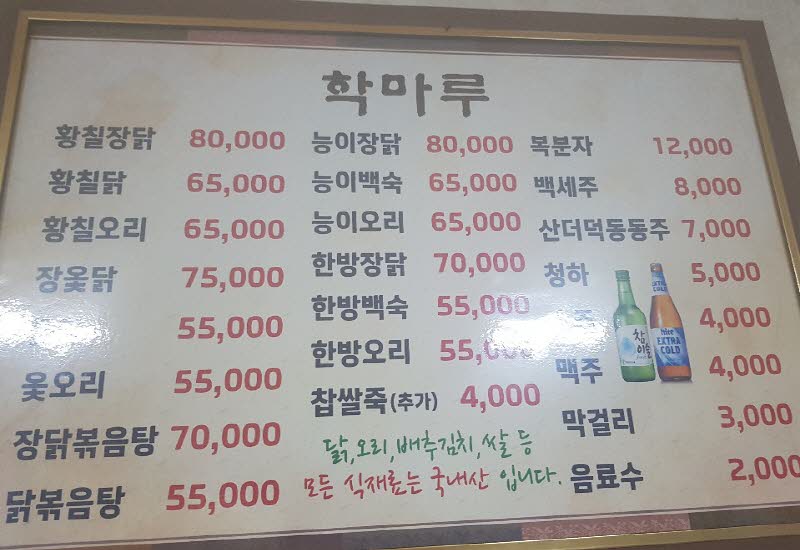 학마루
황칠장닭 80,000
황칠닭 65,000
황칠오리 65,000
장옻닭 75,000
55,000
옻오리 55,000
장닭볶음탕 70,000
닭볶음탕 55,000
능이장닭 80,000
능이백숙 65,000
능이오리 65,000
한방장닭 70,000
한방백숙 55,000
한방오리 55,000
찹쌀죽(추가) 4,000
닭,오리,배추김치,쌀 등
모든 식재료는 국내산 입니다.
복분자 12,000
백세주 8,000
산더덕동동주 7,000
청하 5,000
주 4,000
맥주 4,000
막걸리 3,000
음료수 2,000
참이슬
hite
EXTRA
COLD